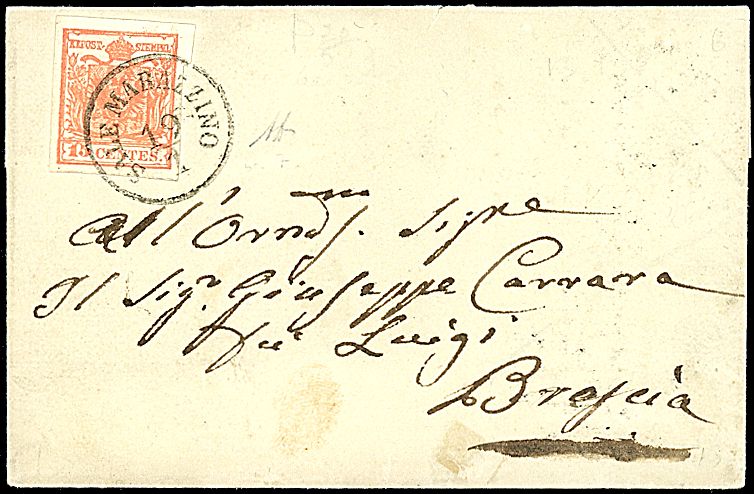 KKPOST-STEMPEL
15 CENTES.
SALE MARAZZINO
19
All' Ornmo. Sigre
Il Sigr. Giuseppe Carrara
fu Luigi
Brescia